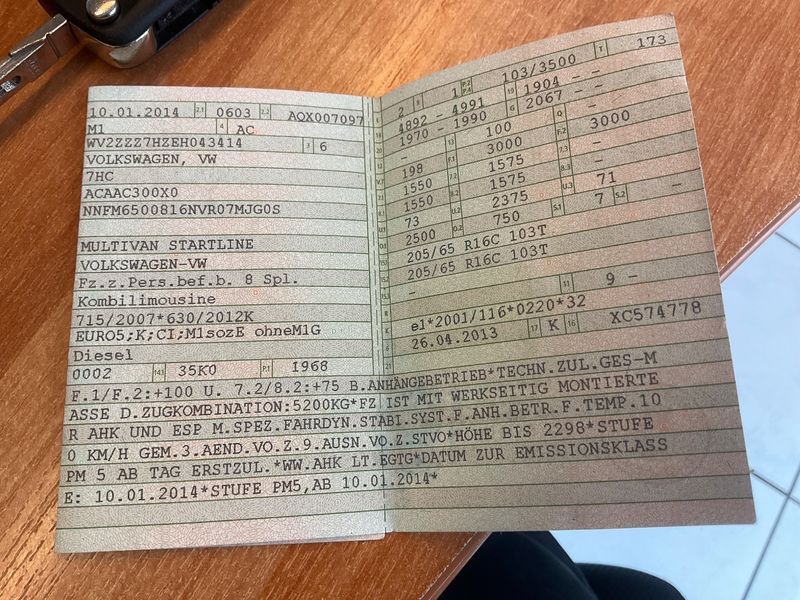 10.01.2014 2.1 0603 2.2 AQX007097
M1 4 AC
WV2ZZZ7HZEH043414 3 6
VOLKSWAGEN, VW
7HC
ACAAC300X0
NNFM6500816NVR07MJG0S
MULTIVAN STARTLINE
VOLKSWAGEN-VW
Fz.z.Pers.bef.b. 8 Spl.
Kombilimousine
715/2007*630/2012K
EURO5;K;CI;M1sozE ohneM1G
Diesel
0002 14.1 35K0 P.1 1968
2 9 1 P.2 P.4 103/3500 T 173
18 4892 - 4991 19 1904 - -
20 1970 - 1990 G 2067 - -
- 13 100 Q -
198 F.1 3000 F.2 3000
1550 7.2 1575 7.3 -
1550 8.2 1575 -
73 U.2 2375 U.3 71
2500 O.2 750 S.1 7 S.2 -
205/65 R16C 103T
205/65 R16C 103T
- 11 9 -
e1*2001/116*0220*32
26.04.2013 17 K 16 XC574778
F.1/F.2:+100 U. 7.2/8.2:+75 B.ANHÄNGEBETRIEB*TECHN.ZUL.GES-M
ASSE D.ZUGKOMBINATION:5200KG*FZ IST MIT WERKSEITIG MONTIERTE
R AHK UND ESP M.SPEZ.FAHRDYN.STABI.SYST.F.ANH.BETR.F.TEMP.10
0 KM/H GEM.3.AEND.VO.Z.9.AUSN.VO.Z.STVO*HÖHE BIS 2298*STUFE
PM 5 AB TAG ERSTZUL.*WW.AHK LT.EGTG*DATUM ZUR EMISSIONSKLASS
E: 10.01.2014*STUFE PM5,AB 10.01.2014*